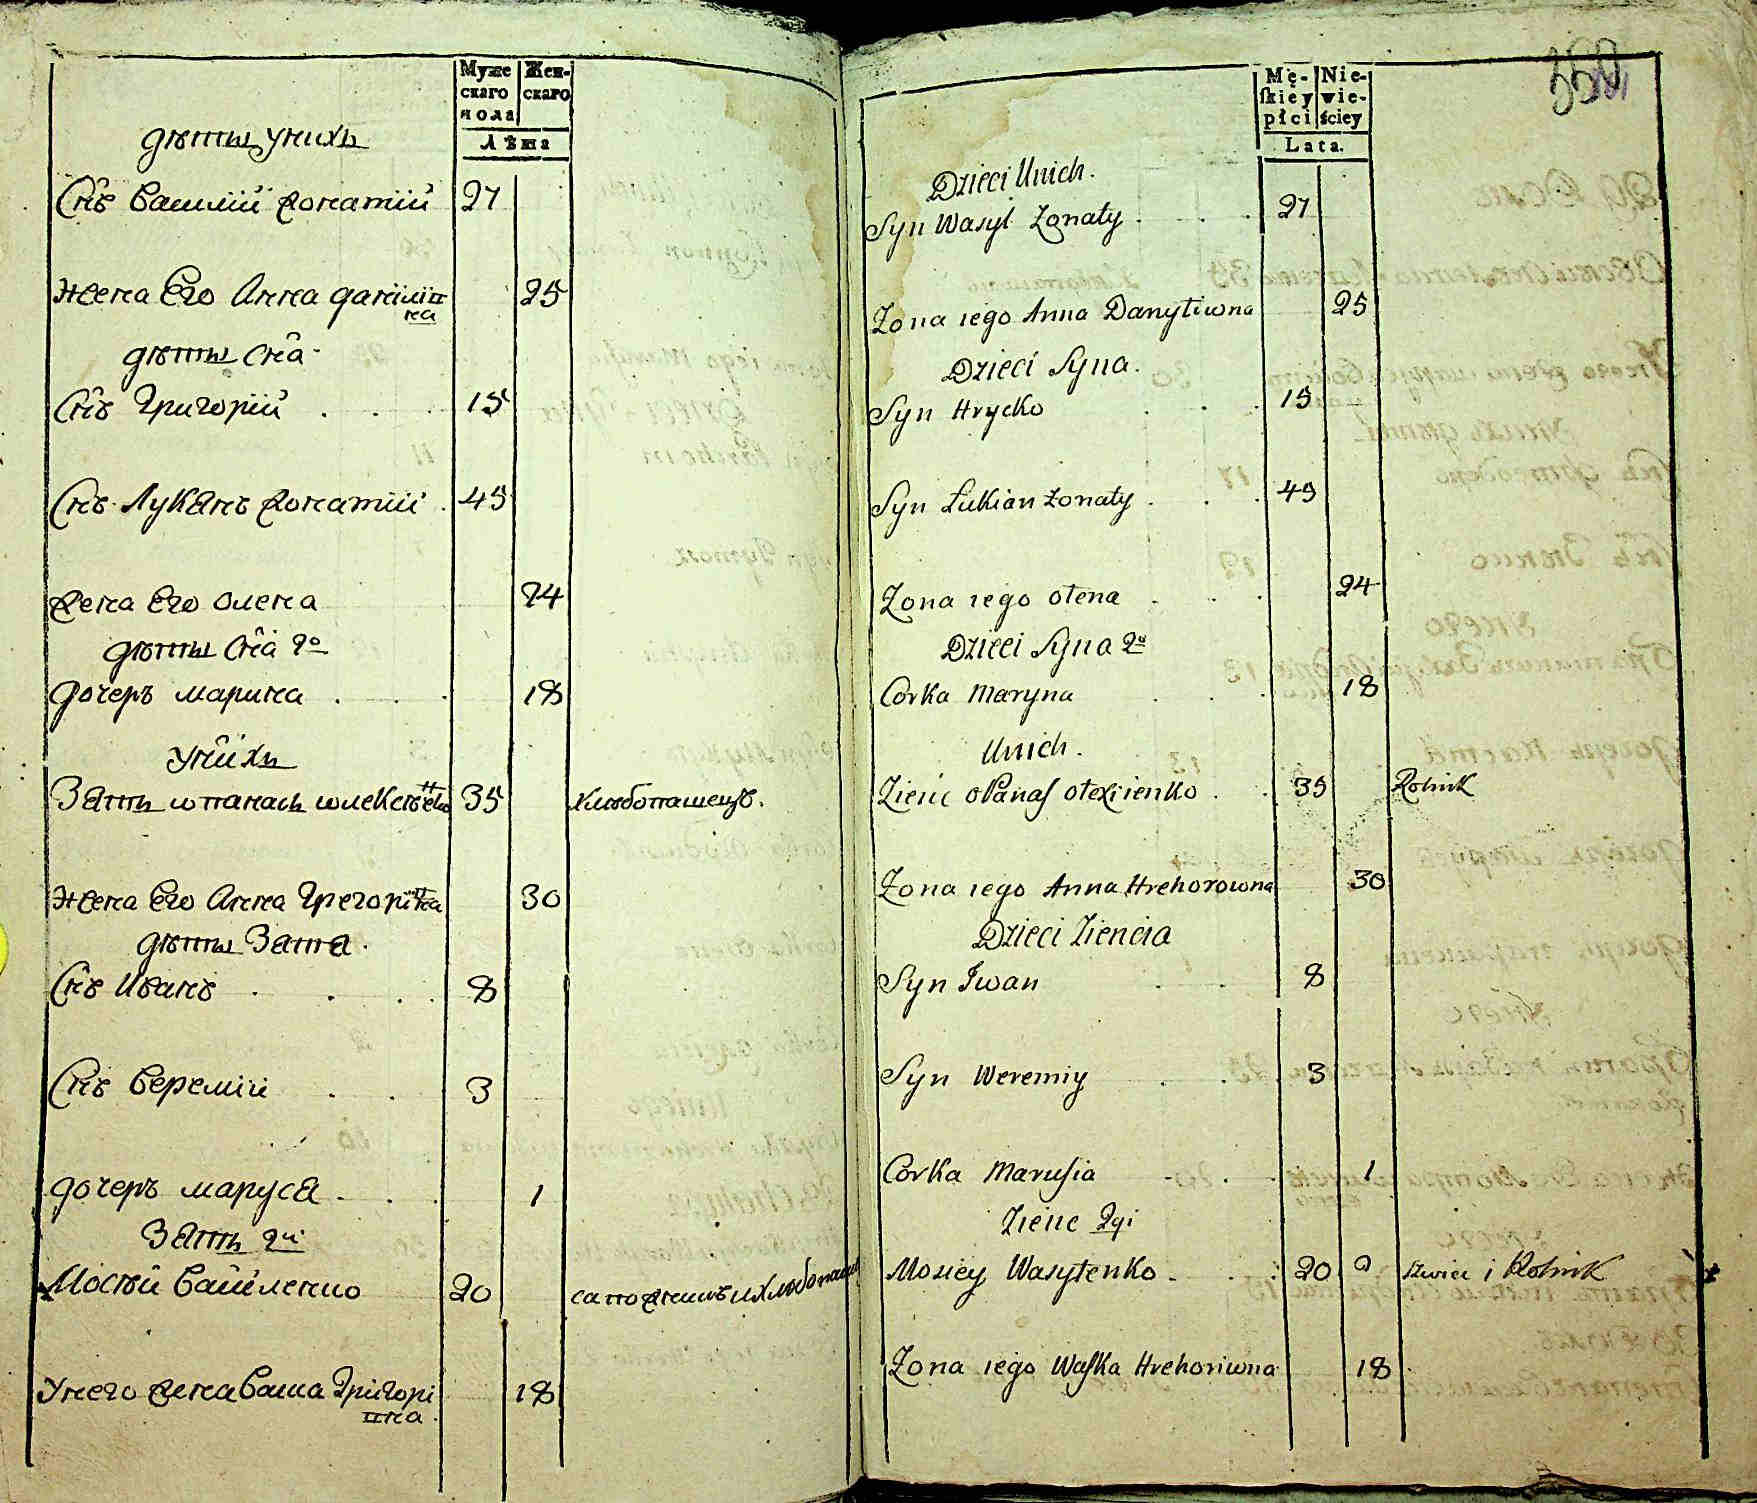 Муже
скаго
пола
Жен-
скаго
Лѣта
дѣти у нихъ
Снъ Василій жонатій 27
жена Его Анна данилів
на 25
дѣти Сна
Снъ Григорій 15
Снъ Лукянъ жонатій 45
жена Его Олена 24
дѣти Сна 2о
дочеръ марина 18
У нихъ
Зять опанасъ олексѣенко 35 хлѣбопашецъ.
жена Его Анна Григорівна 30
дѣти Зятя.
Снъ Иванъ 8
Снъ Веремій 3
дочеръ маруся 1
Зять 2й
Мосѣй Василенко 20 сапожникъ и хлѣбопашецъ
У него жена Васка Григорі
вна 18
Mę-
skiey
płci
Nie-
wie-
ściey
Lata.
Dzieci Unich.
Syn Wasyl Żonaty 27
Żona iego Anna Danyliwna 25
Dzieci Syna.
Syn Hrycko 15
Syn Łukian żonaty 45
Żona iego Olena 24
Dzieci Syna 2o
Corka Maryna 18
Unich.
Zienc oPanas olexiienko 35 Rolnik
Żona iego Anna Hrehorowna 30
Dzieci Ziencia
Syn Iwan 8
Syn Weremiy 3
Corka Marusia 1
Zienc 2gi
Mosiey Wasylenko 20 szwiec i Rolnik
Żona iego Waska Hrehoriwna 18